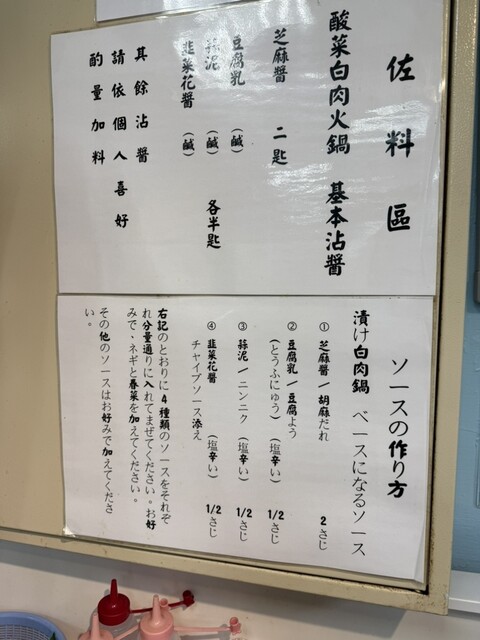 佐料區
酸菜白肉火鍋 基本沾醬
芝麻醬 二匙
豆腐乳 (鹹)
蒜泥 (鹹) 各半匙
韭菜花醬 (鹹)
其餘沾醬
請依個人喜好
酌量加料
ソースの作り方
漬け白肉鍋 ベースになるソース
① 芝麻醬/胡麻だれ 2さじ
② 豆腐乳/豆腐よう
(とうふにゅう) (塩辛い) 1/2さじ
③ 蒜泥/ニンニク (塩辛い) 1/2さじ
④ 韭菜花醬 (塩辛い) 1/2さじ
チャイブソース添え
右記のとおりに4種類のソースをそれぞ
れ分量通りに入れてまぜてください。お好
みで、ネギと春菜を加えてください。
その他のソースはお好みで加えてくださ
い。